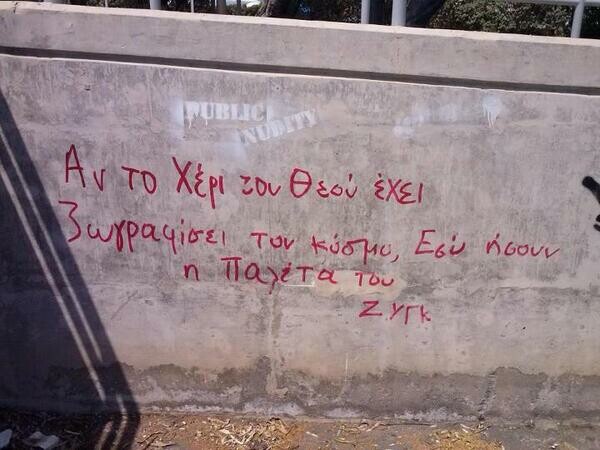 PUBLIC
NUDITY
Αν το Χέρι του Θεού έχει
Ζωγραφίσει τον κόσμο, Εσύ ήσουν
η Παλέτα του
Ζ.ΥΓΚ